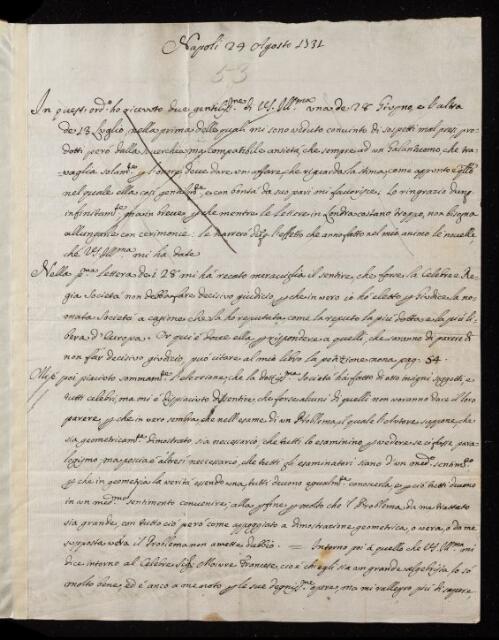 Napoli 24 Agosto 1731
53
In questi ord.ⁱ ho ricevuto due gentiliss.ᵐᵉ di V.S. Ill.ᵐᵃ una de 28 Giugno, e l'altra
de 13 Luglio, nella prima delle quali mi sono veduto convinto di sospetti mal presi, pro-
dotti però dalla soverchia ma compatibile ansietà, che sempre ad un Galantuomo, che tra-
vaglia solam.ᵗᵉ p l'onore deve dare un affare, che riguarda la stima, come apronto è q.ᵗᵒ
nel quale ella così gentilm.ᵗᵉ, e con bontà da suo pari mi favorisce. Lo ringrazio dunq
infinitam.ᵗᵉ, ma in breve, p che mentre le lettere in Londra costano troppo, non bisogna
allungarle con cerimonie: le narrerò l'effetto che anno fatto nel mio animo le novelle,
che V.S. Ill.ᵐᵃ mi ha date
Nella p.ᵐᵃ lettera de i 28 mi hà recato meraviglia il sentire, che forse la Celebre Re-
gia Società non debba fare decisivo giudicio, p che in vero io hò eletto p Giudice la no-
mata Società a cagione che la hò reputata, come la reputo la più dotta, e la più li-
bera d'Europa. Or qui è dove ella p rispondere a quelli, che sanno di parere di
non far decisivo giudicio, può citare al mio libro la petizione nona pag: 54
Mi è poi piaciuto sommam.ᵗᵉ l'elezzione, che la dottiss.ᵐᵃ Società hà fatto di otto insigni soggetti, e
tutti celebri, ma mi è dispiaciuto di sentire, che forse alcuni di quelli non voranno dare il loro
parere p che in vero sembra, che nell'esame di un Problema, il quale l'Autore suppone, che
sia geometricam.ᵗᵉ dimostrato sia necessario, che tutti lo esaminino p vedere se ci fosse para-
logismo; ma poscia è altresì necessario, che tutti gli esaminatori siano d'un med.ᵐᵒ sentim.ᵗᵒ
p che in geometria la verità essendo una, tutti devono egualm.ᵗᵉ conoscerla, e p ciò tutti devono
in un med.ᵐᵒ sentimento convenire; alla p fine p molto che l Problema da me trattato
sia grande, con tutto ciò però come appoggiato a dimostrazione geometrica, o vera, o da me
supposta vera il Problema non amette dubbio. = Intorno poi à quello che V.S. Ill.ᵐᵃ mi
dice intorno al Celebre Sig. Moivre Francese, cioè che egli sia un grande Algebrista lo sò
molto bene, ed è anco a me noto p le sue degniss.ᵐᵉ opere, ma mi rallegro più di sapere,